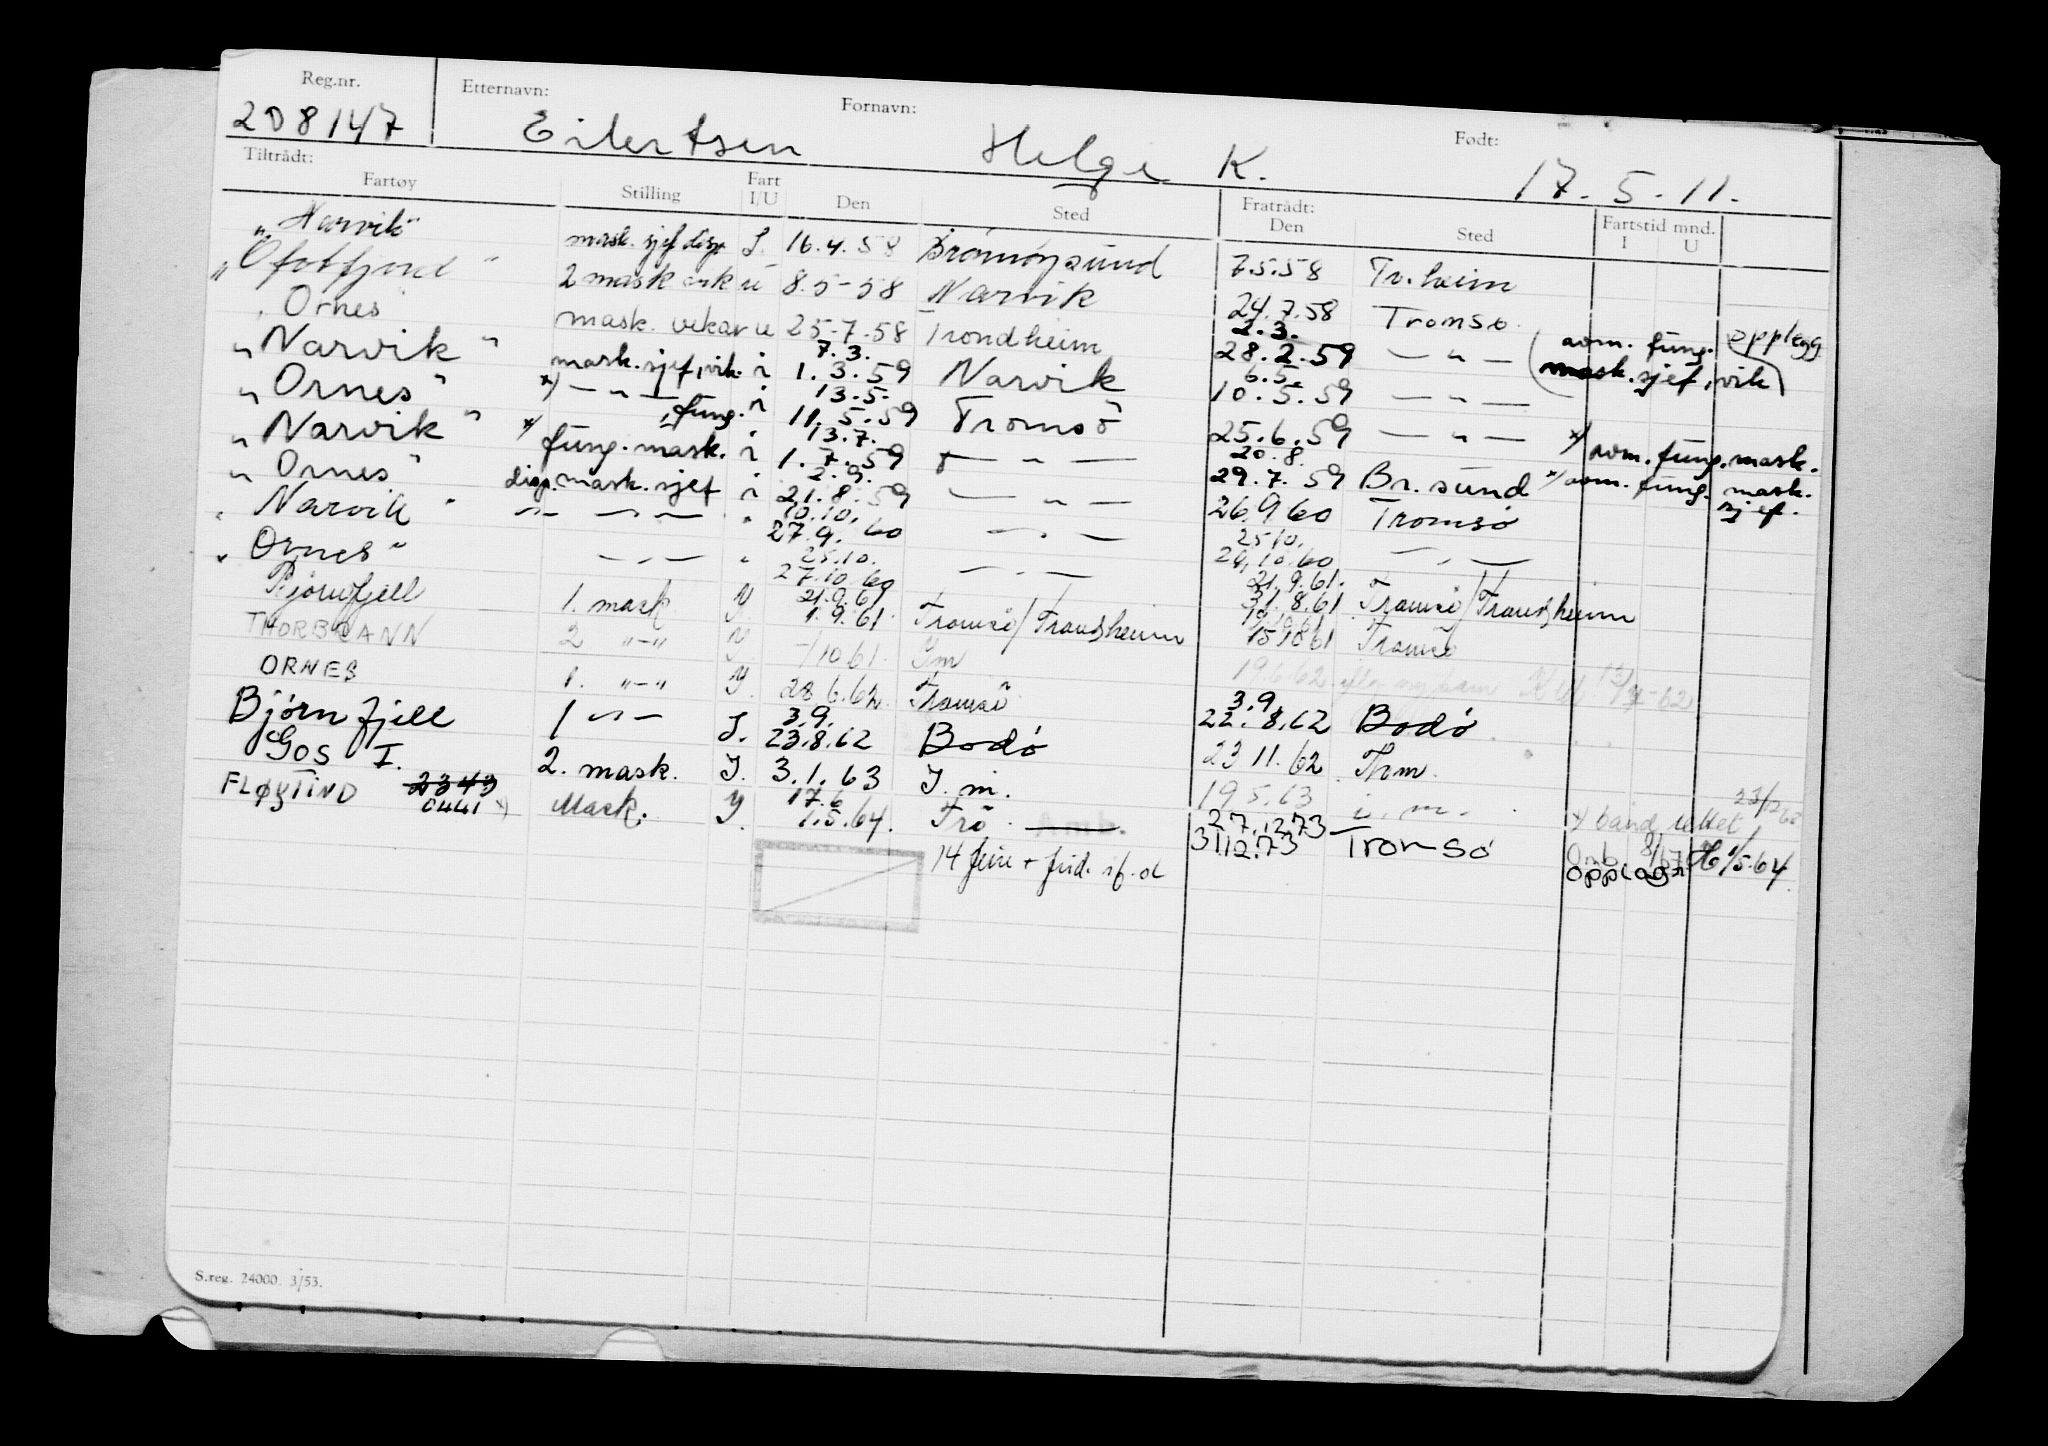 Reg.nr. Etternavn: Fornavn: Født:
208147 Eilertsen Helge K. 17.5.11.
Tiltrådt: Fratrådt:
Fartøy Stilling Fart I/U Den Sted Den Sted Fartstid mnd. I U
"Narvik" mask. sjef disp I. 16.4.58 Brønnøysund 7.5.58 Tr.heim
"Ofotfjord" 2 mask vik u 8.5-58 Narvik 24.7.58 Tromsø. opplegg
"Ornes mask. vikar u 25-7.58 Trondheim 2.3. 28.2.59 — " — (som. fung. mask.sjef, vik)
"Narvik" mask.sjef, vik. i 7.3. 1.3.59 Narvik 6.5. 10.5.59 — " —
"Ornes" x) — " — , fung. i 13.5. 11.5.59 Tromsö 25.6.59 — " — x) som. fung. mask.
"Narvik" x) fung. mask. i 13.7. 1.7.59 — " — 20.8. 29.7.59 Br.sund x) som. fung. mask. sjef.
"Ornes" disp. mask. sjef i 2.9. 21.8.59 — " — 26.9 60 Tromsø
"Narvik" — " — " 10.10. 27.9.60 — " — 25.10. 24.10.60 — " —
"Ornes" — " — " 25.10. 27.10.60 — " — 21.9.61. 31.8.61 Tromsø/Trondheim
Bjørnfjell 1. mask Y. 21.9.61 1.9.61. Tromsø/Trondheim 15.10 61 Tromsø
THORBRANN 2 "-" Y -/10 61. Ym 19.6 62.
ORNES 1. "-" Y. 28.6.62. Tromsø 3.9. 22.8.62 Bodø
Bjørnfjell 1 — " — I. 3.9. 23.8.62 Bodø 23 11.62 Thm.
GOS I. 2. mask. I. 3.1.63 I. m. 19 5.63 i. m.
FLØYTIND 2343 0441 x) Mask. Y. 17.6 1.5.64. Trö. 27.12.73 31.12.73 Tromsø x) band rettet
14 feire + frid. if. ol opplag H 1/5.64
S.reg. 24000. 3/53.